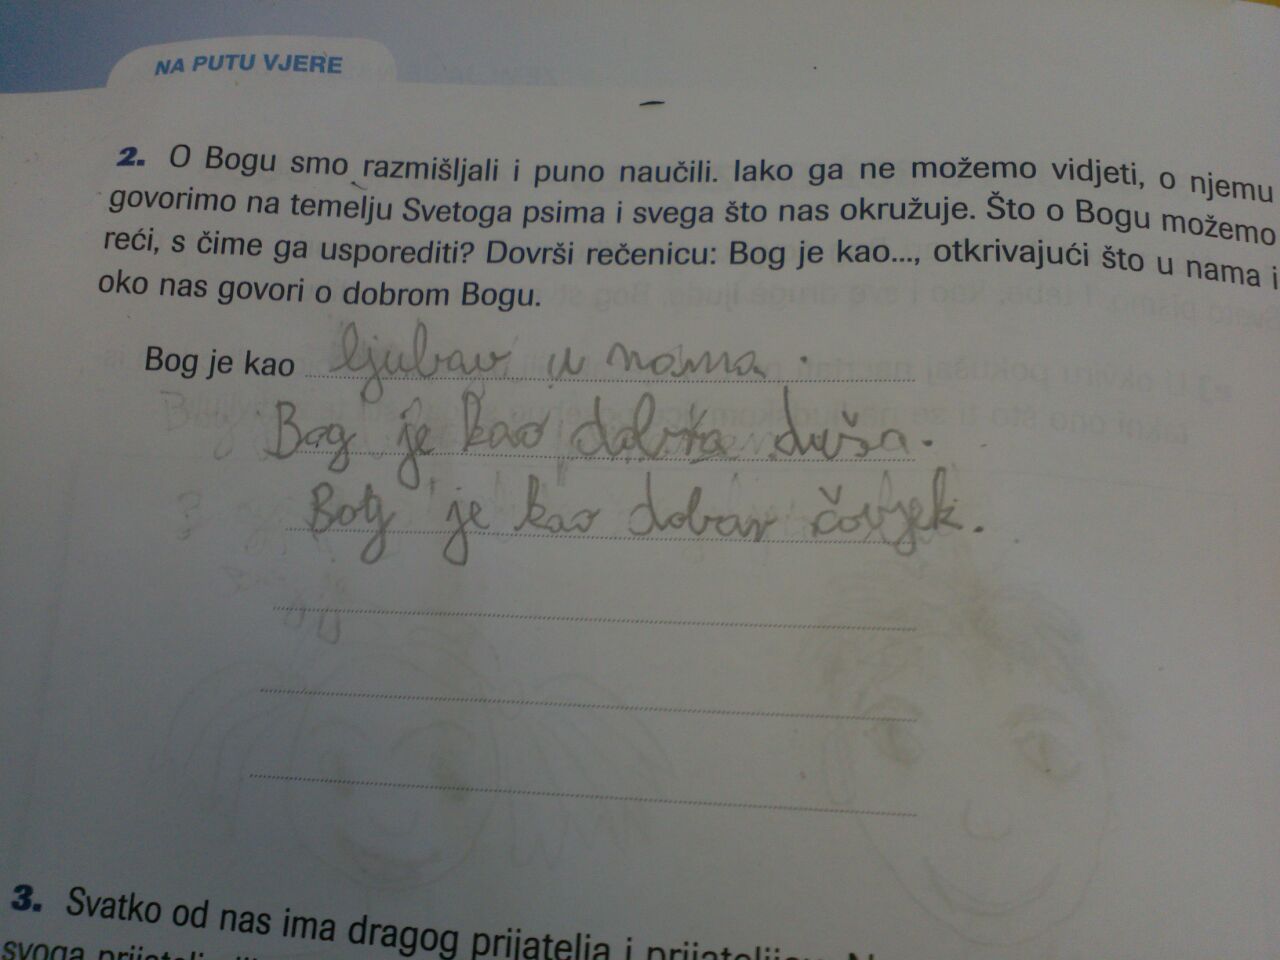 NA PUTU VJERE
2. O Bogu smo razmišljali i puno naučili. Iako ga ne možemo vidjeti, o njemu
govorimo na temelju Svetoga psima i svega što nas okružuje. Što o Bogu možemo
reći, s čime ga usporediti? Dovrši rečenicu: Bog je kao..., otkrivajući što u nama i
oko nas govori o dobrom Bogu.
Bog je kao ljubav u nama.
Bog je kao dobra duša.
Bog je kao dobar čovjek.
3. Svatko od nas ima dragog prijatelja i prijateljicu.
svoga